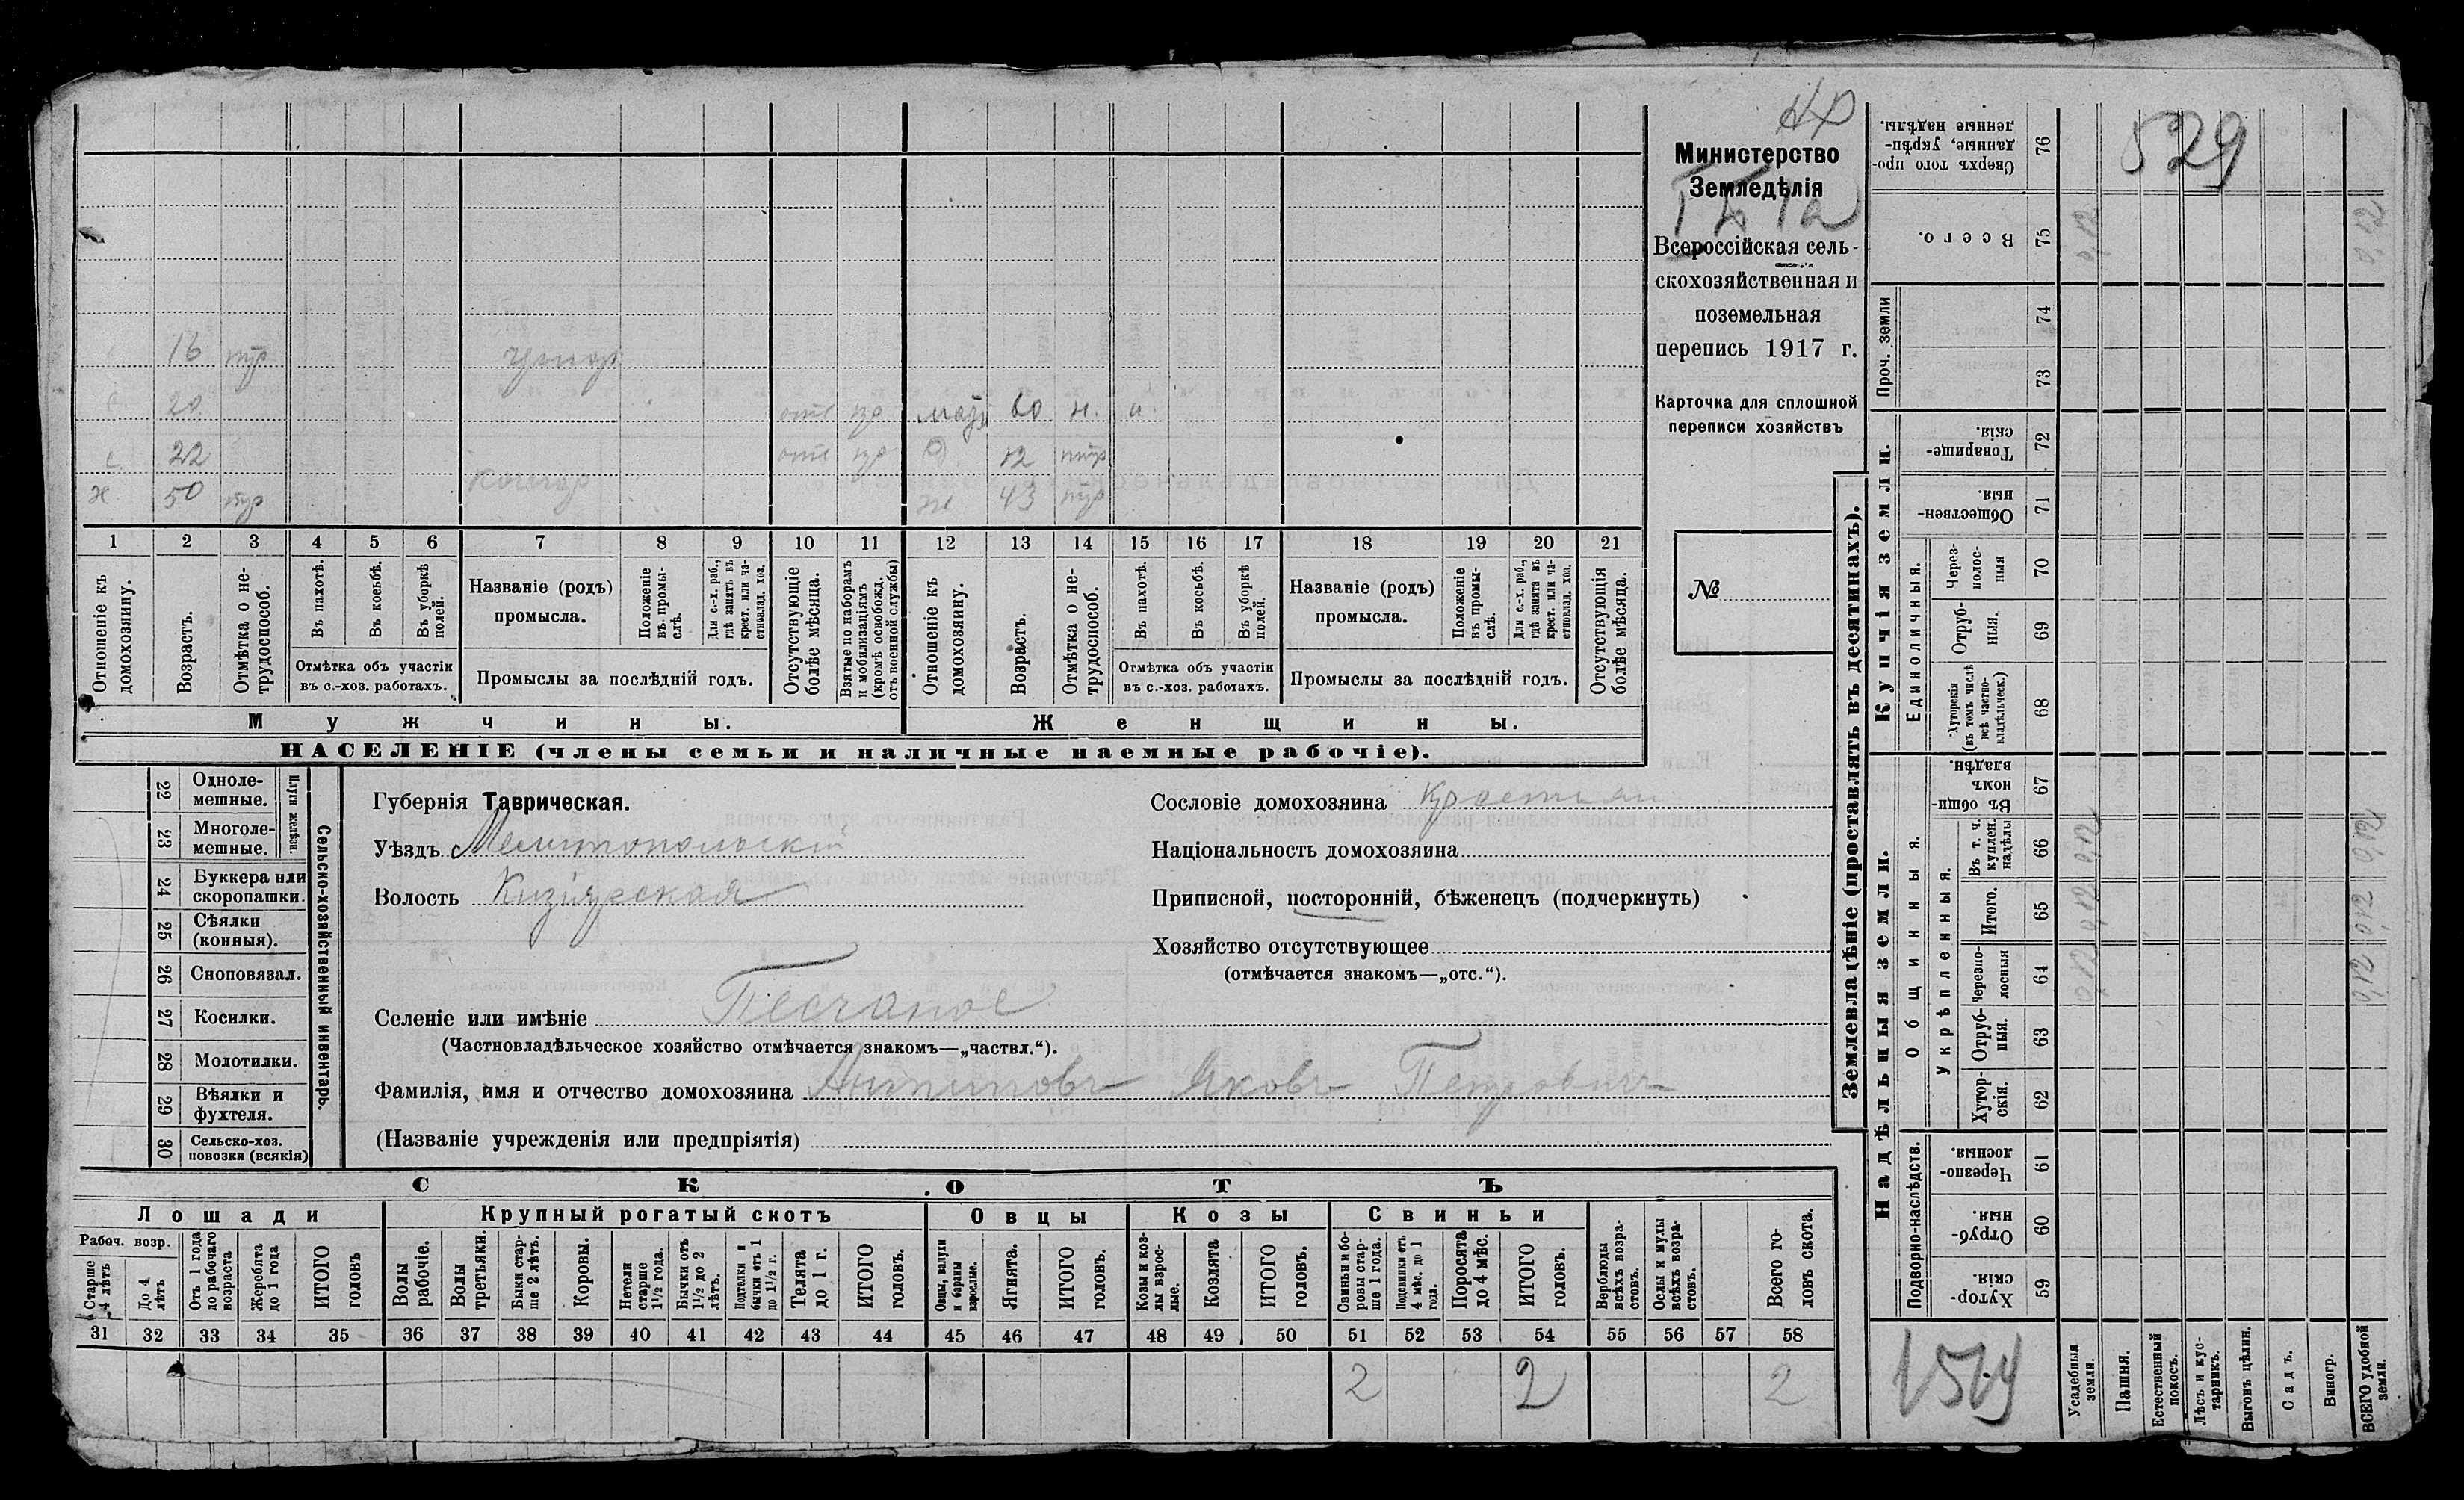 16 нтр
20 отс матъ 60 н. и.
с. 22 отс д 12 нтр
х 50 нтр ж 43 нтр
1 2 3 4 5 6 7 8 9 10 11 12 13 14 15 16 17 18 19 20 21
Отношеніе къ домохозяину.
Возрастъ.
Отмѣтка о не-трудоспособ.
Въ пахотѣ.
Въ косьбѣ.
Въ уборкѣ полей.
Отмѣтка объ участіи въ с.-хоз. работахъ.
Названіе (родъ) промысла.
Положеніе въ промы-слѣ.
Для с.-х. раб., гдѣ занятъ въ крест. или ча-стновлад. хоз.
Промыслы за послѣдній годъ.
Отсутствующіе болѣе мѣсяца.
Взятые по наборамъ и мобилизаціямъ (кромѣ освобожд. отъ военной службы)
Отношеніе къ домохозяину.
Возрастъ.
Отмѣтка о не-трудоспособ.
Въ пахотѣ.
Въ косьбѣ.
Въ уборкѣ полей.
Отмѣтка объ участіи въ с.-хоз. работахъ.
Названіе (родъ) промысла.
Положеніе въ промы-слѣ.
Для с.-х. раб., гдѣ занята въ крест. или ча-стновлад. хоз.
Промыслы за послѣдній годъ.
Отсутствующія болѣе мѣсяца.
Мужчины.
Женщины.
НАСЕЛЕНІЕ (члены семьи и наличные наемные рабочіе).
Министерство
Земледѣлія
Всероссійская сель-
скохозяйственная и
поземельная
перепись 1917 г.
Карточка для сплошной
переписи хозяйствъ
№
22 Одноле-мешные.
23 Многоле-мешные.
Плуги желѣзн.
24 Буккера или скоропашки.
25 Сѣялки (конныя).
26 Сноповязал.
27 Косилки.
28 Молотилки.
29 Вѣялки и фухтеля.
30 Сельско-хоз. повозки (всякія)
Сельско-хозяйственный инвентарь.
Губернія Таврическая.
Уѣздъ Мелитопольскій
Волость Кизіярская
Сословіе домохозяина Крестьян
Національность домохозяина
Приписной, посторонній, бѣженецъ (подчеркнуть)
Хозяйство отсутствующее
(отмѣчается знакомъ—„отс.“).
Селеніе или имѣніе Песчаное
(Частновладѣльческое хозяйство отмѣчается знакомъ—„частвл.“).
Фамилія, имя и отчество домохозяина Антиповъ Яковъ Петровичъ
(Названіе учрежденія или предпріятія)
СКОТЪ
Лошади
Крупный рогатый скотъ
Овцы
Козы
Свиньи
Рабоч. возр.
Старше 4 лѣтъ
До 4 лѣтъ
Отъ 1 года до рабочаго возраста
Жеребята до 1 года
ИТОГО головъ
Волы рабочіе.
Волы третьяки.
Быки стар-ше 2 лѣтъ.
Коровы.
Нетели старше 1½ года.
Бычки отъ 1½ до 2 лѣтъ.
Подтелки и бычки отъ 1 до 1½ г.
Телята до 1 г.
ИТОГО головъ.
Овцы, валухи и бараны взрослые.
Ягнята.
ИТОГО головъ.
Козы и коз-лы взрос-лые.
Козлята
ИТОГО головъ.
Свиньи и бо-ровы стар-ше 1 года.
Подсвинки отъ 4 мѣс. до 1 года.
Поросята до 4 мѣс.
ИТОГО головъ.
Верблюды всѣхъ возра-стовъ.
Ослы и мулы всѣхъ возра-стовъ.
Всего го-ловъ скота.
31 32 33 34 35 36 37 38 39 40 41 42 43 44 45 46 47 48 49 50 51 52 53 54 55 56 57 58
2 2 2
Землевладѣніе (проставлять въ десятинахъ).
Купчія земли.
Надѣльныя земли.
Проч. земли
Единоличныя.
Общинныя.
Укрѣпленныя.
Подворно-наслѣдств.
Сверхъ того про-данные, укрѣп-ленные надѣлы. 76
529
Всего. 75 0,12 0,12
74
73
Товарище-скія. 72
Обществен-ныя. 71
Через-полос-ныя 70
Отруб-ныя. 69
Хуторскія (въ томъ числѣ всѣ частно-владѣльческ.) 68
Въ общин-номъ владѣн. 67
Въ т. ч. куплен. надѣлы 66 0,12 0,12
Итого. 65 0,12 0,12
Черезпо-лосныя 64 0,12 0,12
Отруб-ныя. 63
Хутор-скія. 62
Черезпо-лосныя. 61
Отруб-ныя 60
Хутор-скія. 59
Усадебныя земли.
Пашня.
Естественный покосъ.
Лѣсъ и кус-тарникъ.
Выгонъ цѣлин.
Садъ.
Виногр.
ВСЕГО удобной земли.